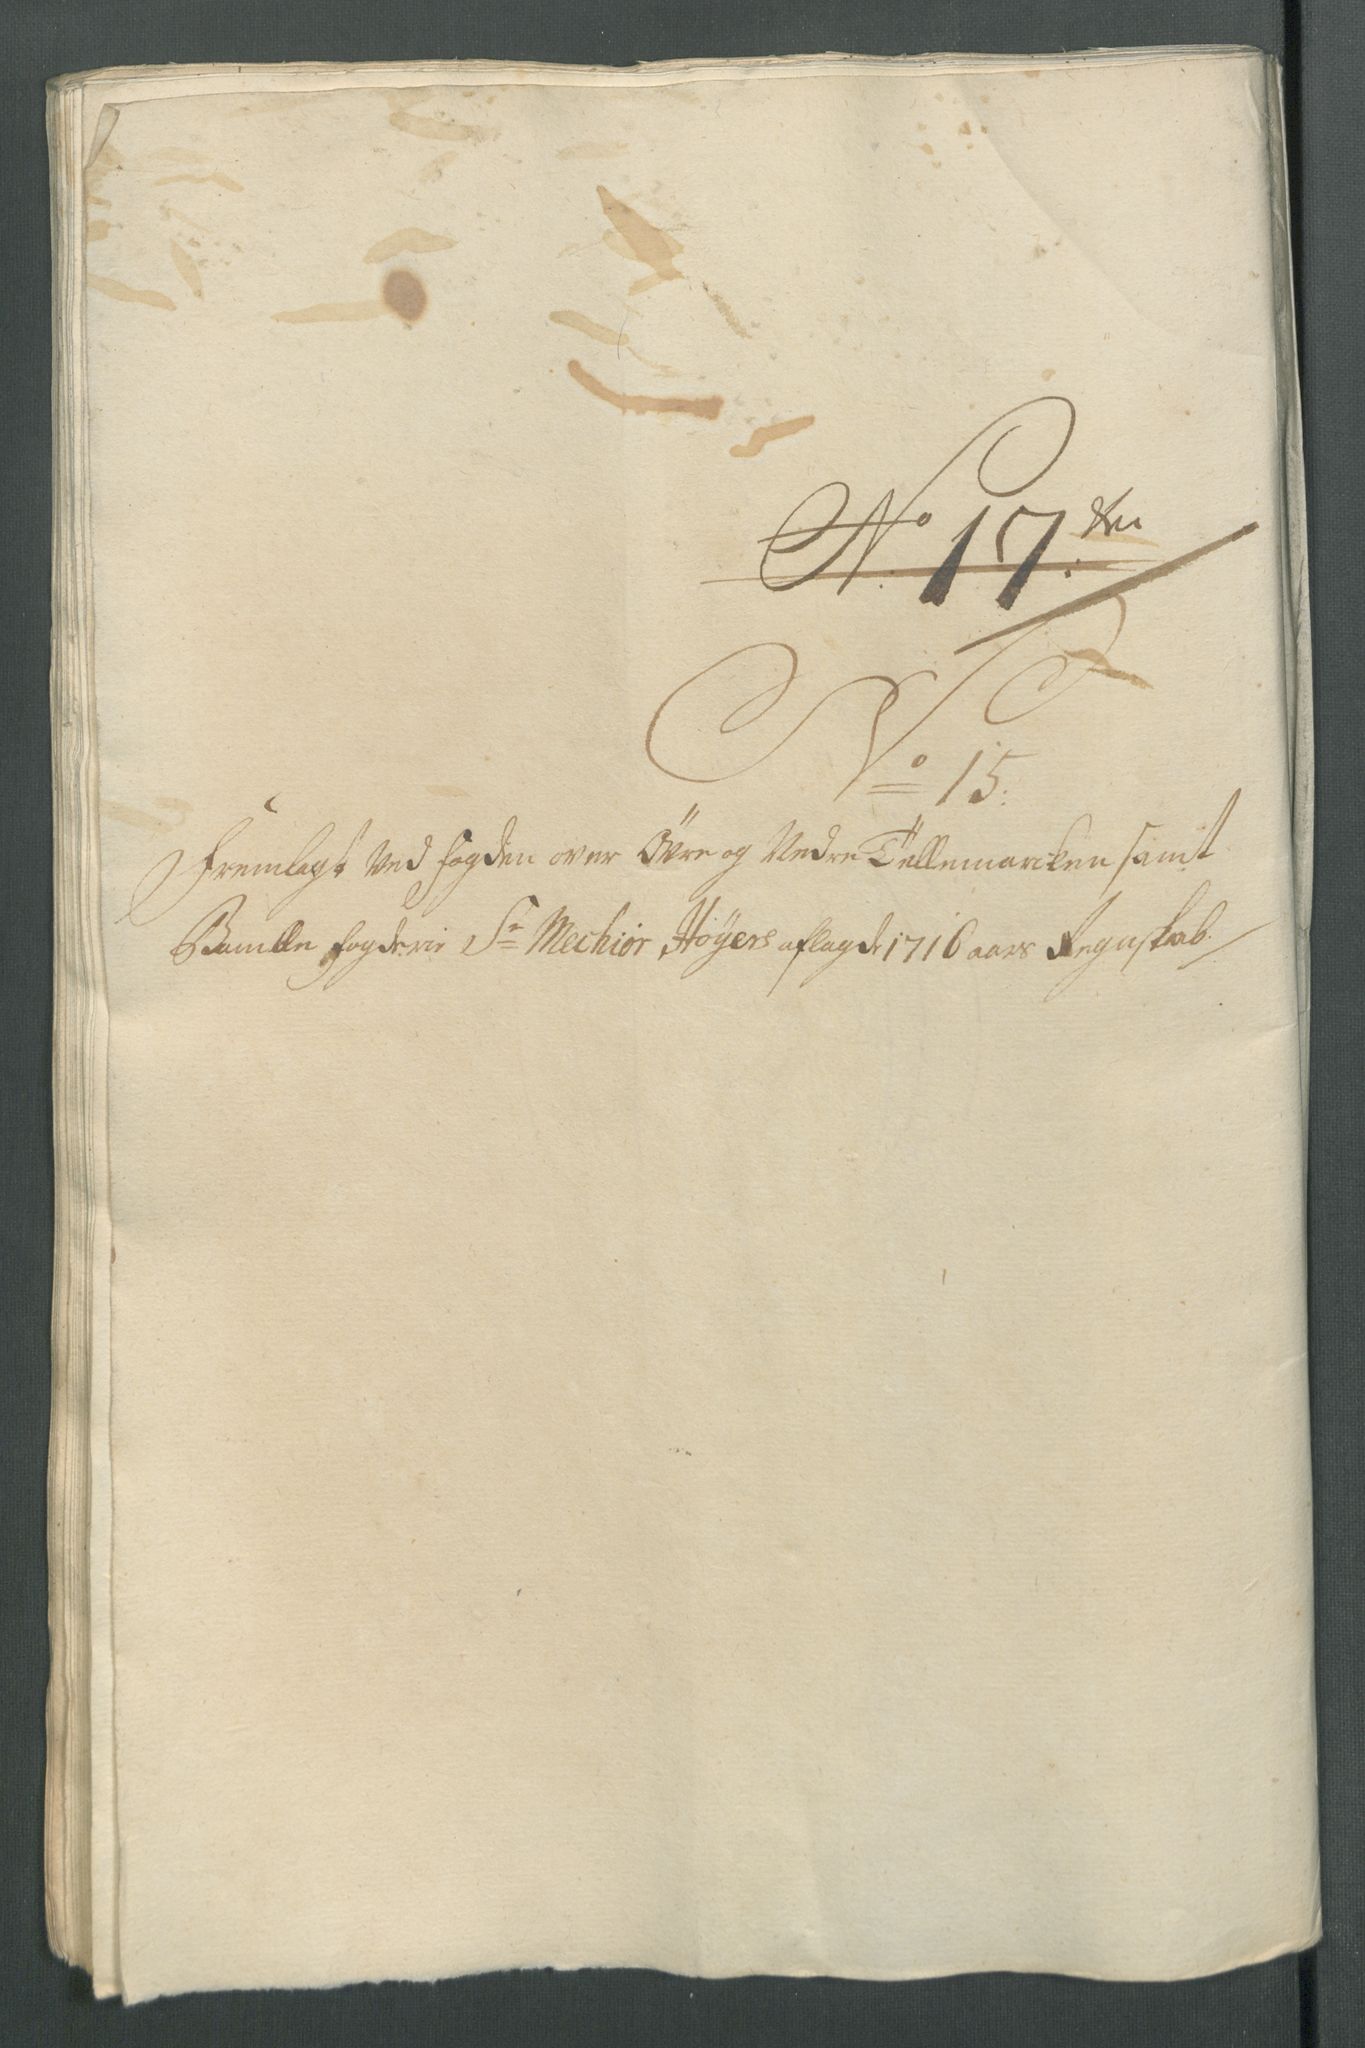 No 17:
No 15:
Fremlagt Ved fogden over Övre og Nedre Tellemarcken samt
Bamble fogderie Sr Mechior Höyers aflagde 1716 aars Regnskab.